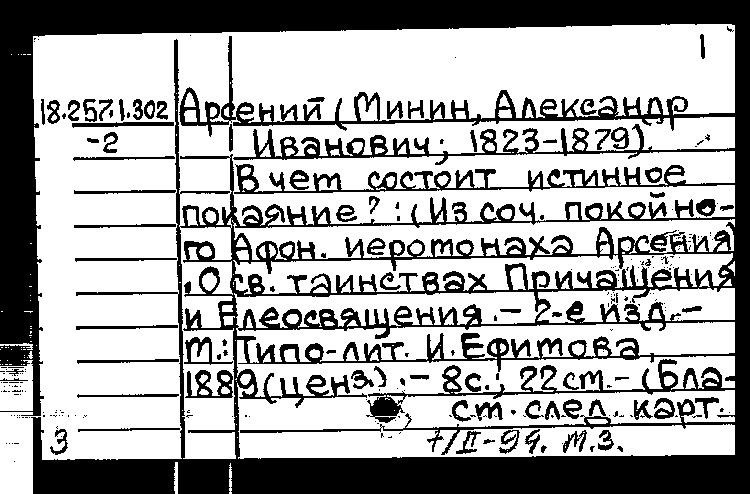 1
18.257.1.302 Арсений (Минин, Александр
-2 Иванович; 1823-1879).
В чем состоит истинное
покаяние? : (Из соч. покойно-
го Афон. иеромонаха Арсения)
. О св. таинствах Причащения
и Елеосвящения. - 2-е изд. -
М.: Типо-лит. И. Ефимова,
1889 (ценз.). - 8с.; 22см. - (Бла-
см. след. карт.
3 7/II-99. М.З.